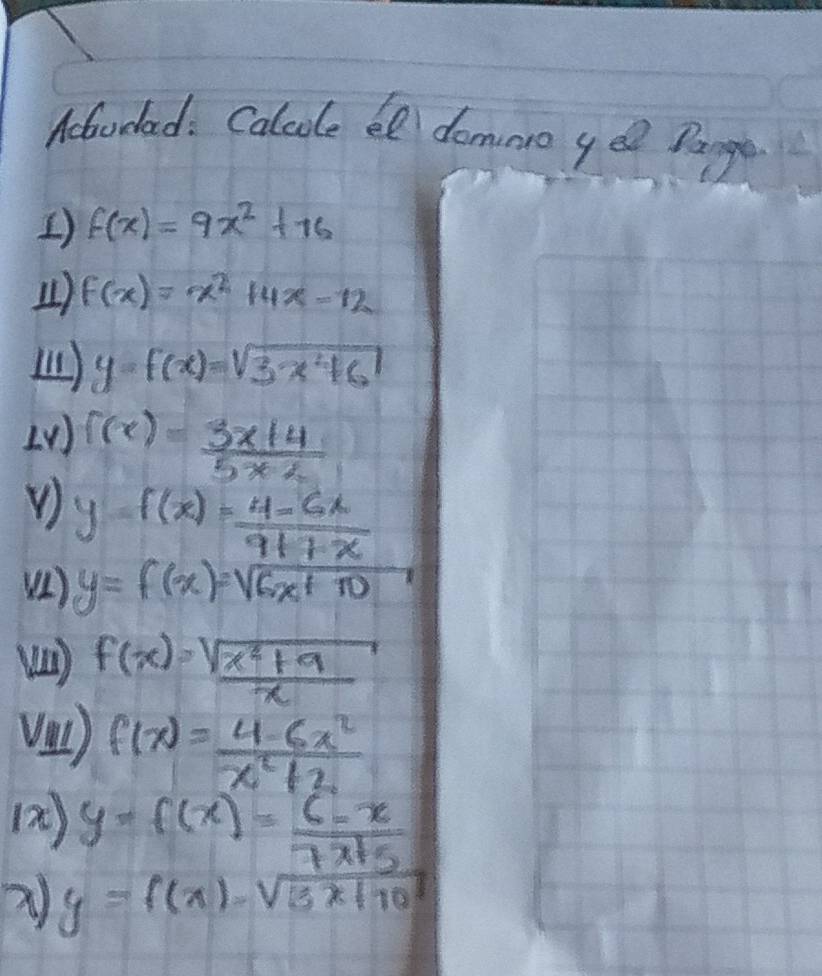 Actividad: Calcule él dominio y el Rango.
I) f(x) = 9x² + 16
II) f(x) = x² + 4x - 12
III) y = f(x) = √3x²+6
IV) f(x) = 3x+4
5x2
V) y = f(x) = 4-6x
9+7x
VI) y = f(x) = √6x+10
VII) f(x) = √x²+9
x
VIII) f(x) = 4-6x²
x²+2
IX) y = f(x) = 6-x
7x+5
X) y = f(x) = √3x+10